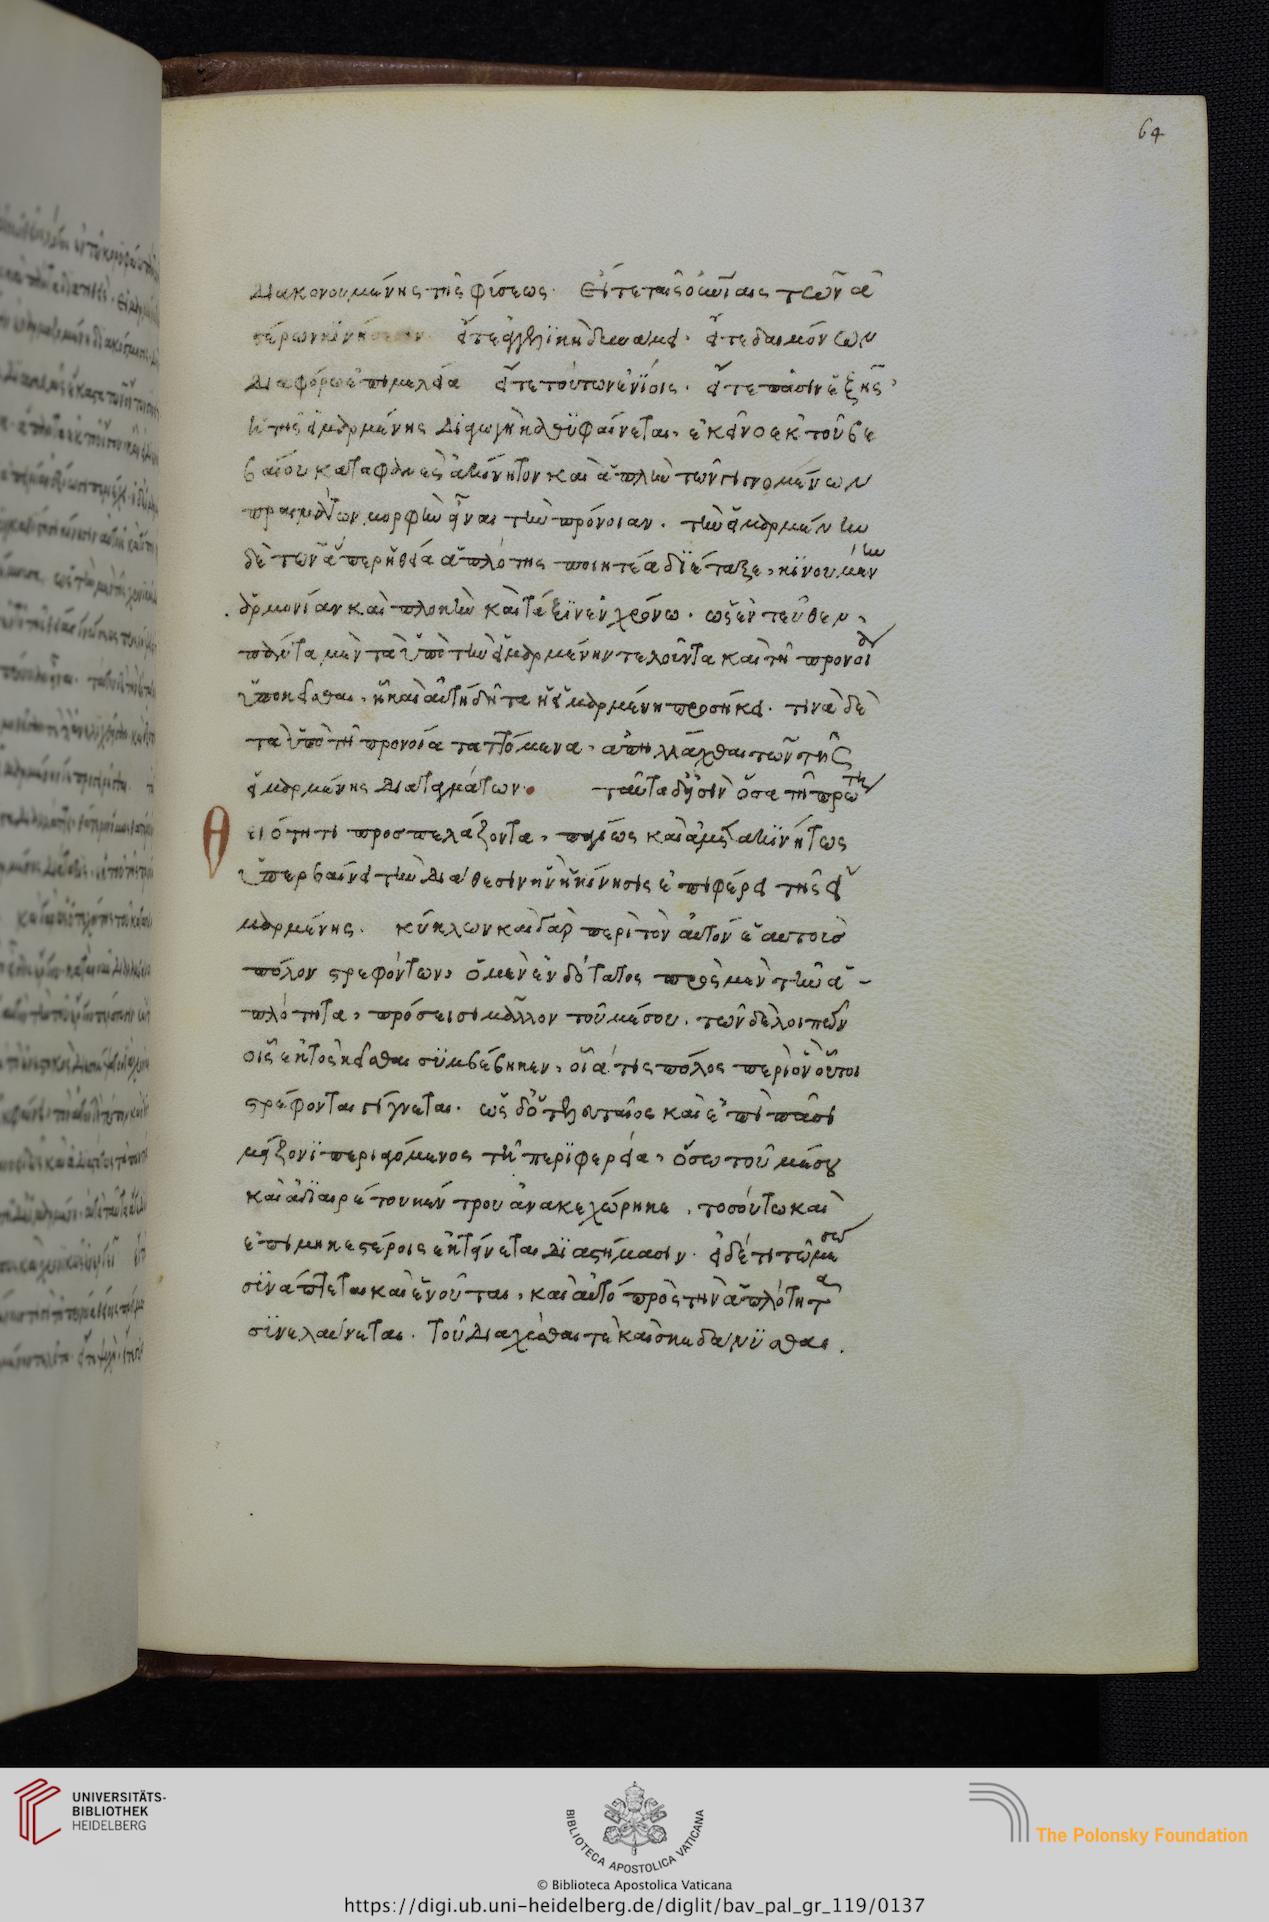 64
διακονουμένης τῆς φύσεως. εἴτε ταῖς οὐρανίαις τῶν ἀ
στέρων κινήσεσιν εἴτε ἀγγελικῇ δυνάμει. εἴτε δαιμόνων
διαφόρω ἐπιμελεία εἴτε τούτων ἐνίοις. εἴτε πᾶσιν ἑξῆς,
ἡ τῆς εἱμαρμένης διαγωγὴ ἀλυφαίνεται, ἐκεῖνο ἐκ τοῦ βε
βαίου καταφανὲς ἀκίνητον καὶ ἁπλὴν τῶν γιγνομένων
πραγμάτων μορφὴν εἶναι τὴν πρόνοιαν. τὴν εἱμαρμένην
δὲ τῶν ἅπερ ἡ θεία ἁπλότης ποιητέα διέταξε, κινουμένην
ἁρμονίαν καὶ πλοκὴν καὶ τάξιν ἐν χρόνω. ὡς ἐντεῦθεν,
πάντα μὲν τὰ ὑπὸ τὴν εἱμαρμένην τελοῦντα καὶ τῇ προνοία
ὑποκεῖσθαι, ᾗ καὶ αὐτὴ δῆτα ἡ εἱμαρμένη προσήκει. τινὰ δὲ
τὰ ὑπὸ τῇ προνοία ταττόμενα, ἀπηλλάχθαι τῶν τῆς
εἱμαρμένης διαταγμάτων. ταῦτα δή εἰσιν ὅσα τῇ πρώτῃ
θειότητι προσπελάζοντα, παγίως καὶ ἀμετακινήτως
ὑπερβαίνει τὴν διάθεσιν ἣν ἡ κίνησις ἐπιφέρει τῆς εἱ
μαρμένης. κύκλων καὶ γὰρ περὶ τὸν αὐτὸν ἑαυτοῖς
πόλον στρεφόντων, ὁ μὲν ἐνδότατος πρὸς μὲν τὴν ἁ-
πλότητα, πρόσεισι μᾶλλον τοῦ μέσου. τῶν δὲ λοιπῶν
οἷς ἐκτὸς κεῖσθαι συμβέβηκεν, οἷά τις πόλος περὶ ὃν οὗτοι
στρέφονται γίγνεται. ὡς δ' ὁ τελευταῖος καὶ ἐπὶ πᾶσι
μείζονι περιαγόμενος τῇ περιφερεία, ὅσω τοῦ μέσου
καὶ ἀδιαιρέτου κέντρου ἀνακεχώρηκε, τοσούτω καὶ
ἐπιμηκεστέροις ἐκτείνεται διαστήμασιν. εἰ δέ τι τῷ μέσω
συνάπτεται καὶ ἑνοῦται, καὶ αὐτὸ πρὸς τὴν ἁπλότητα
συνελαύνεται. τοῦ διαχεῖσθαί τε καὶ σκεδάννυσθαι.
UNIVERSITÄTS-
BIBLIOTHEK
HEIDELBERG
BIBLIOTECA APOSTOLICA VATICANA
© Biblioteca Apostolica Vaticana
The Polonsky Foundation
https://digi.ub.uni-heidelberg.de/diglit/bav_pal_gr_119/0137